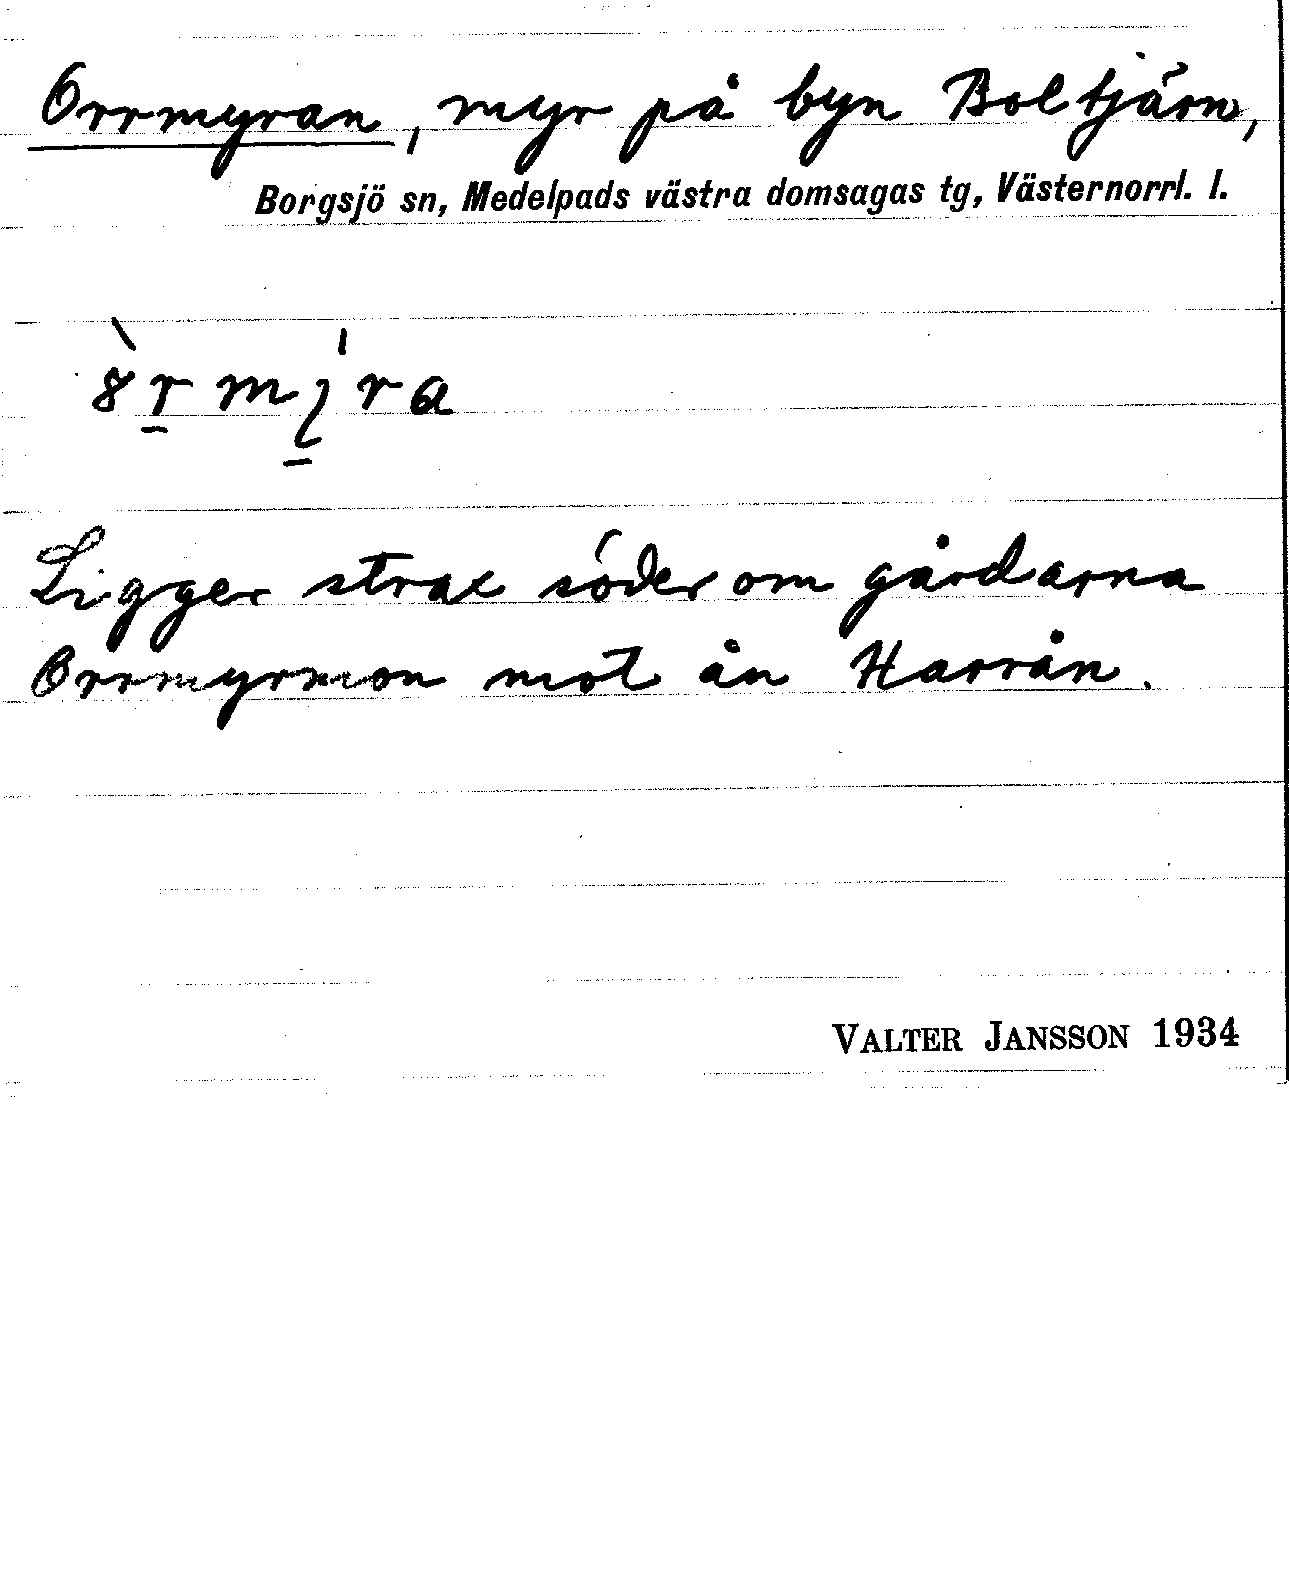 Orrmyran, myr på byn Boltjärn,
Borgsjö sn, Medelpads västra domsagas tg, Västernorrl. l.
Ligger strax söder om gårdarna
Orrmyrmon mot ån Harrån.
VALTER JANSSON 1934